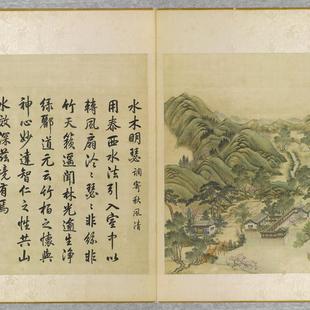 水木明瑟 調寄秋風清
用泰西水法引入室中以
轉風扇泠〻瑟〻非絲非
竹天籟遙聞林光逾生淨
綠酈道元云竹栢之懷與
神心妙達智仁之性共山
水效深茲境有焉